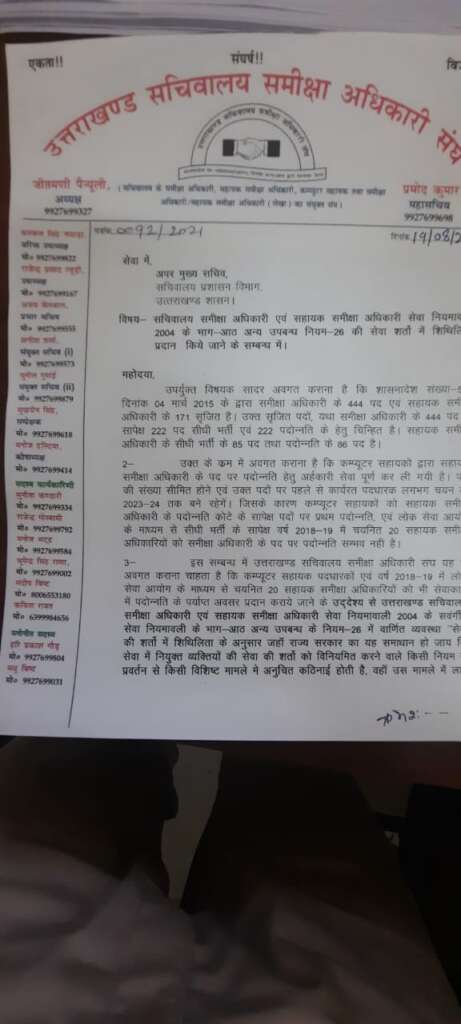 एकता!!
संघर्ष!!
उत्तराखण्ड सचिवालय समीक्षा अधिकारी संघ
जीतमणी पैन्यूली,
अध्यक्ष
9927699327
(सचिवालय के समीक्षा अधिकारी, सहायक समीक्षा अधिकारी, कम्प्यूटर सहायक तथा समीक्षा
अधिकारी/सहायक समीक्षा अधिकारी (लेखा) का संयुक्त संघ)
प्रमोद कुमार
महासचिव
9927699698
पत्रांक 0092/2021
दिनांक 19/08/2
वरिष्ठ उपाध्यक्ष
मो० 9927699822
उपाध्यक्ष
मो० 9927699167
प्रचार सचिव
मो० 9927699555
संयुक्त सचिव (i)
मो० 9927699573
संयुक्त सचिव (ii)
मो० 9927699879
सम्प्रेक्षक
मो० 9927699618
कोषाध्यक्ष
मो० 9927699414
सदस्य कार्यकारिणी
मो० 9927699334
मो० 9927699792
मो० 9927699584
मो० 9927699002
संदीप बिष्ट
मो० 8006553180
कविता रावत
मो० 6399984656
मनोनीत सदस्य
हरि प्रकाश गौड़
मो० 9927699804
मधु बिष्ट
मो० 9927699031
सेवा में,
अपर मुख्य सचिव,
सचिवालय प्रशासन विभाग,
उत्तराखण्ड शासन।
विषय– सचिवालय समीक्षा अधिकारी एवं सहायक समीक्षा अधिकारी सेवा नियमाव
2004 के भाग–आठ अन्य उपबन्ध नियम–26 की सेवा शर्तो में शिथि
प्रदान किये जाने के सम्बन्ध में।
महोदया,
उपर्युक्त विषयक सादर अवगत कराना है कि शासनादेश संख्या–
दिनांक 04 मार्च 2015 के द्वारा समीक्षा अधिकारी के 444 पद एवं सहायक समी
अधिकारी के 171 सृजित है। उक्त सृजित पदों, यथा समीक्षा अधिकारी के 444 पद
सापेक्ष 222 पद सीधी भर्ती एवं 222 पदोन्नति के हेतु चिन्हित है। सहायक समी
अधिकारी के सीधी भर्ती के 85 पद तथा पदोन्नति के 86 पद है।
2– उक्त के कम में अवगत कराना है कि कम्प्यूटर सहायको द्वारा सहाय
समीक्षा अधिकारी के पद पर पदोन्नति हेतु अर्हकारी सेवा पूर्ण कर ली गयी है। प
की संख्या सीमित होने एवं उक्त पदों पर पहले से कार्यरत पदधारक लगभग चयन
2023-24 तक बने रहेगें। जिसके कारण कम्प्यूटर सहायको को सहायक समी
अधिकारी के पदोन्नति कोटे के सापेक्ष पदों पर प्रथम पदोन्नति, एवं लोक सेवा आय
के माध्यम से सीधी भर्ती के सापेक्ष वर्ष 2018–19 में चयनित 20 सहायक समी
अधिकारियों को समीक्षा अधिकारी के पद पर पदोन्नति सम्भव नही है।
3– इस सम्बन्ध में उत्तराखण्ड सचिवालय समीक्षा अधिकारी संघ यह
अवगत कराना चाहता है कि कम्प्यूटर सहायक पदधारकों एवं वर्ष 2018–19 में लो
सेवा आयोग के माध्यम से चयनित 20 सहायक समीक्षा अधिकारियों को भी सेवाका
में पदोन्नति के पर्याप्त अवसर प्रदान कराये जाने के उद्देश्य से उत्तराखण्ड सचिवाल
समीक्षा अधिकारी एवं सहायक समीक्षा अधिकारी सेवा नियमावली 2004 के सवर्गी
सेवा नियमावली के भाग–आठ अन्य उपबन्ध के नियम–26 में वार्णित व्यवस्था "से
की शर्तो में शिथिलिता के अनुसार जहाँ राज्य सरकार का यह समाधान हो जाय
सेवा में नियुक्त व्यक्तियों की सेवा की शर्तो को विनियमित करने वाले किसी नियम
प्रवर्तन से किसी विशिष्ट मामले मे अनुचित कठिनाई होती है, वहाँ उस मामले में ला
क्रमशः--